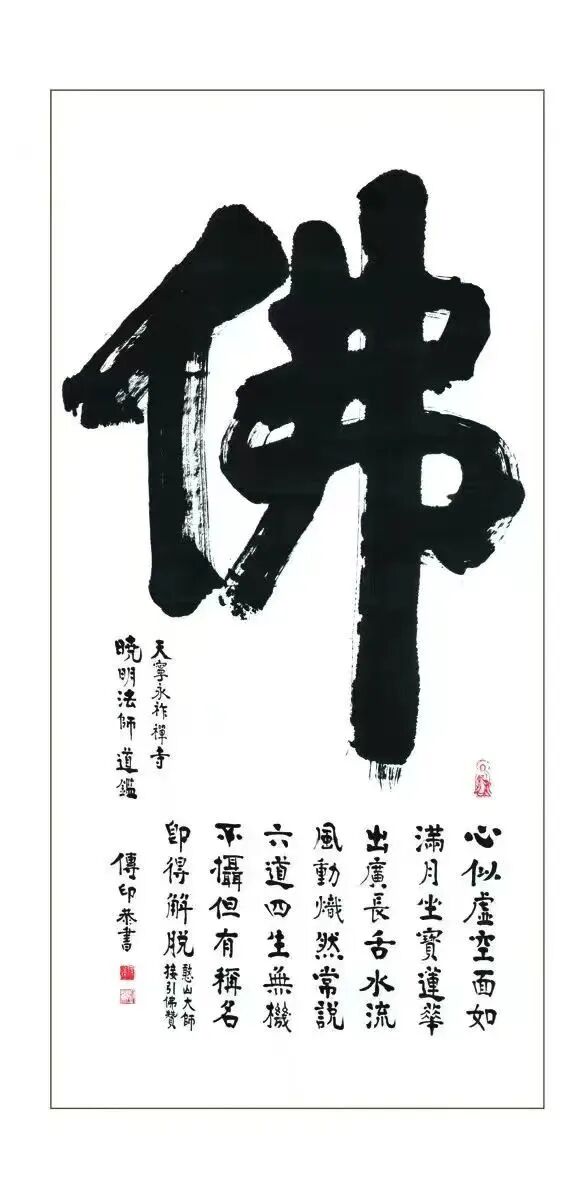 佛
天寧永祚禪寺
曉明法師道鑑
心似虛空面如
滿月坐寶蓮華
出廣長舌水流
風動熾然常說
六道四生無機
不攝但有稱名
即得解脫
憨山大師
接引佛贊
傳印恭書